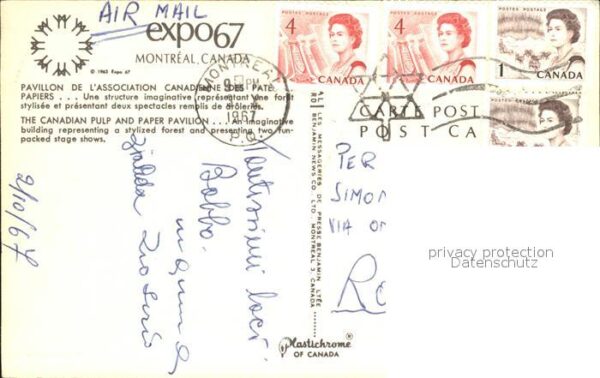 AIR MAIL
expo67
MONTRÉAL, CANADA
© 1963 Expo 67
PAVILLON DE L'ASSOCIATION CANADIENNE DES PÂTES
PAPIERS . . . Une structure imaginative représentant une forêt
stylisée et présentant deux spectacles remplis de drôleries.
THE CANADIAN PULP AND PAPER PAVILION . . . An imaginative
building representing a stylized forest and presenting two fun-
packed stage shows.
MONTREAL
PM
1967
P.Q.
4
POSTES POSTAGE
CANADA
4
POSTES POSTAGE
CANADA
1
POSTES POSTAGE
CANADA
CARTE POST
POST CA
9/10/67
Tantissimi baci
Babbo
LES MESSAGERIES DE PRESSE BENJAMIN LTÉE
BENJAMIN NEWS CO. LTD. MONTREAL 3, CANADA
PER
SIMO
VIA
Plastichrome®
OF CANADA
privacy protection
Datenschutz